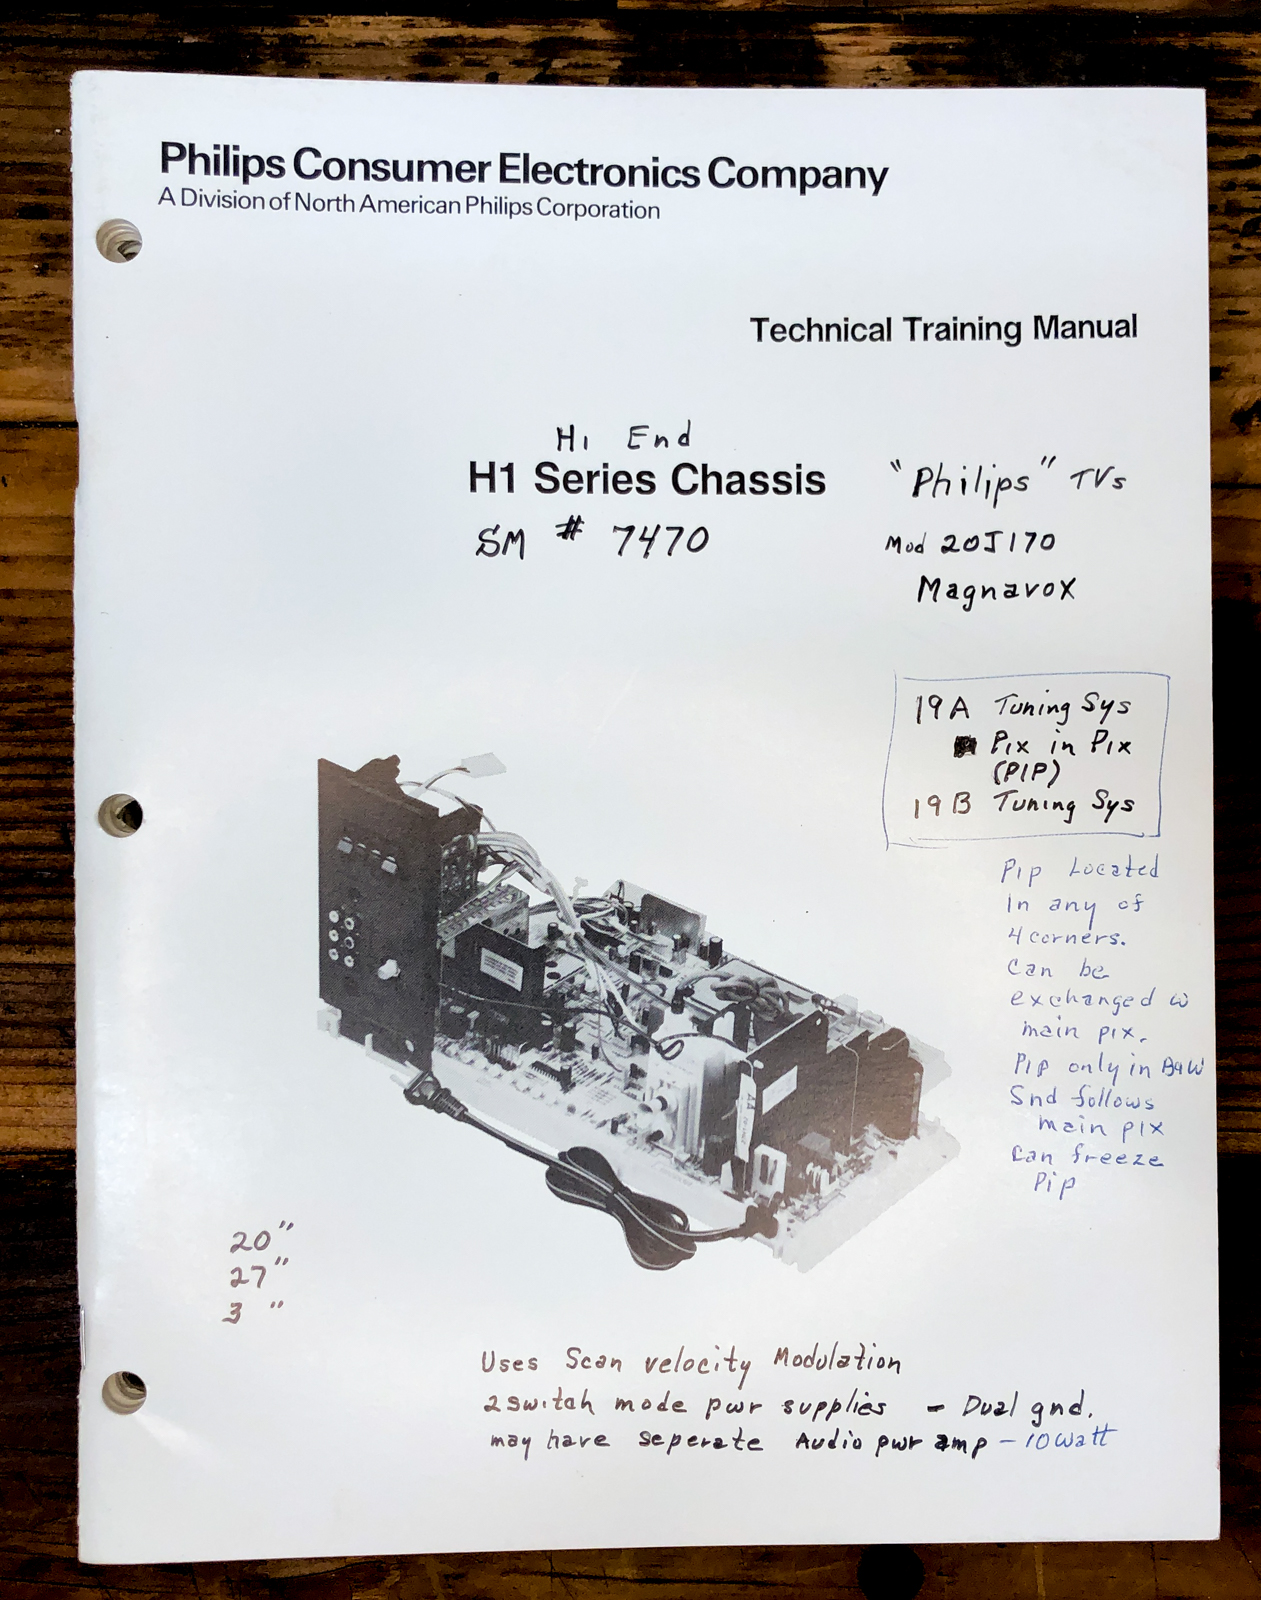 Philips Consumer Electronics Company
A Division of North American Philips Corporation
Technical Training Manual
Hi End
H1 Series Chassis
SM # 7470
"Philips" TVs
Mod 20J170
Magnavox
19A Tuning Sys
Pix in Pix
(PIP)
19B Tuning Sys
Pip Located
in any of
4 corners.
Can be
exchanged w
main pix.
Pip only in B&W
Snd follows
main pix
Can freeze
Pip
20"
27"
3 "
Uses Scan velocity Modulation
2 switch mode pwr supplies - Dual gnd.
may have seperate Audio pwr amp - 10 watt